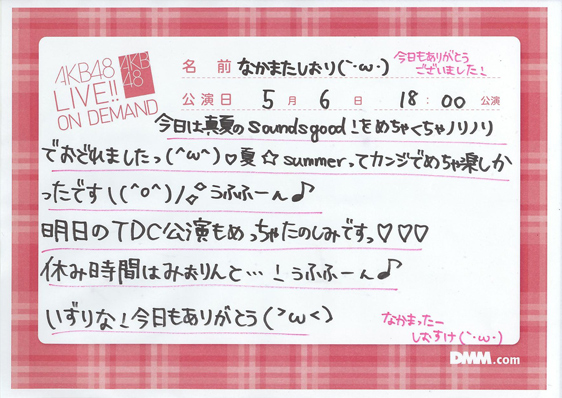 AKB48
LIVE!!
ON DEMAND
AKB
48
名前 なかまたしおり(`･ω･)
今日もありがとう
ございました!
公演日 5月6日 18:00公演
今日は真夏のsoundsgood!をめちゃくちゃノリノリ
でおどれましたっ(^ω^)♡夏☆summerってカンジでめちゃ楽しか
ったです\(^o^)/ うふふーん♪
明日のTDC公演もめっちゃたのしみですっ♡♡♡
休み時間はみおりんと…!うふふーん♪
いずりな!今日もありがとう(>ω<)
なかまったー
しおすけ(`･ω･)
DMM.com